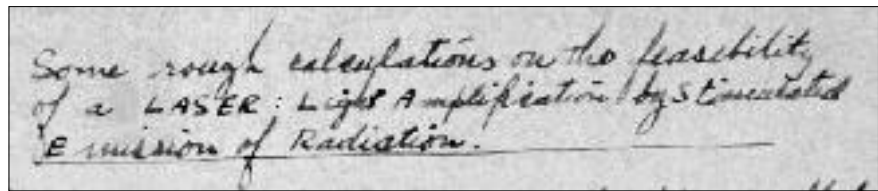 Some rough calculations on the feasibility
of a LASER: Light Amplification by Stimulated
Emission of Radiation.